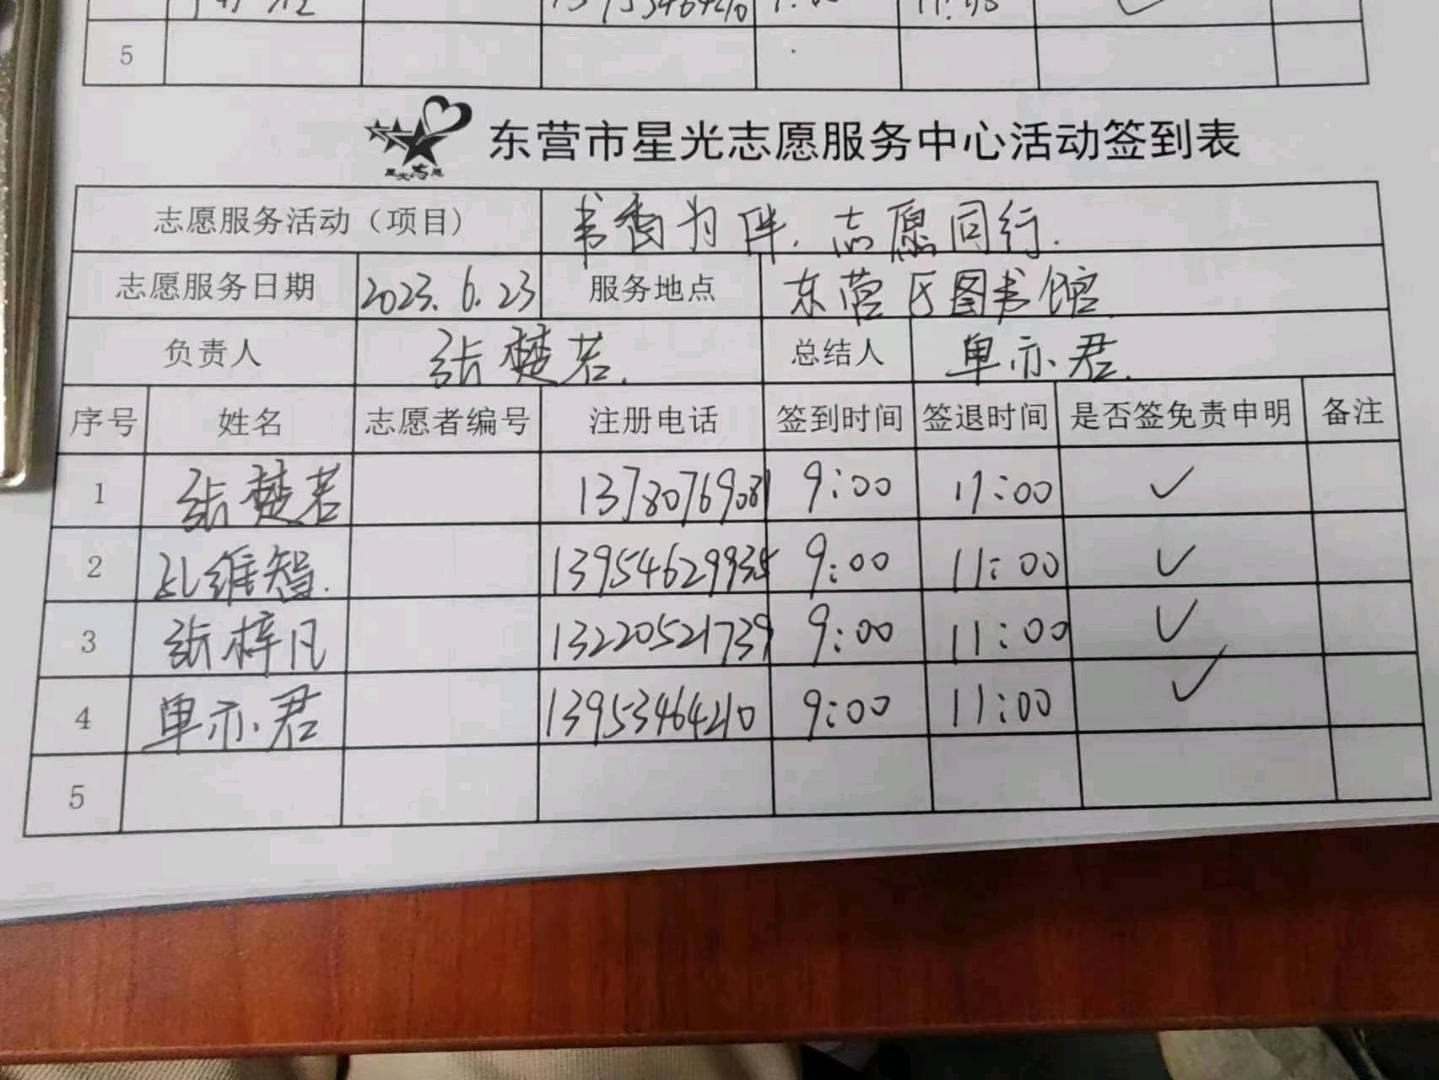 5
东营市星光志愿服务中心活动签到表
志愿服务活动（项目） 书香为伴.志愿同行.
志愿服务日期 2023.6.23 服务地点 东营区图书馆
负责人 张楚若. 总结人 单亦君.
序号 姓名 志愿者编号 注册电话 签到时间 签退时间 是否签免责申明 备注
1 张楚若 13780769081 9:00 11:00 ✓
2 孔维智. 13954629935 9:00 11:00 ✓
3 张梓凡 13220521739 9:00 11:00 ✓
4 单亦君 13953464210 9:00 11:00 ✓
5